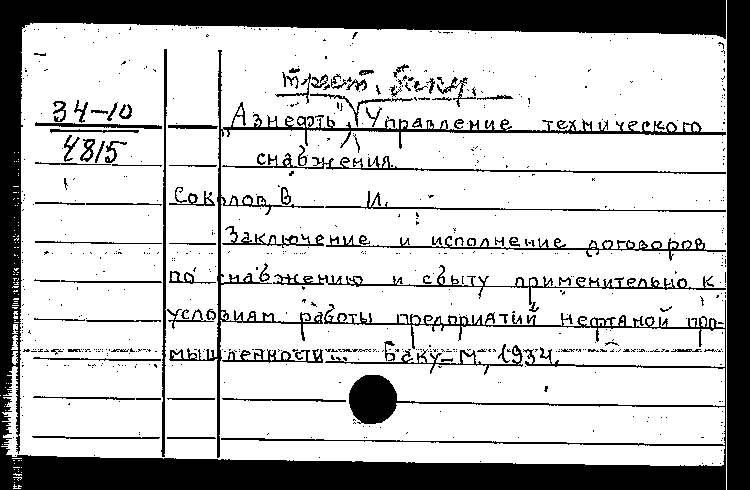 трест. Баку.
34-10
4815
„Азнефть", Управление технического
снабжения.
Соколов, В. И.
Заключение и исполнение договоров
по снабжению и сбыту применительно к
условиям работы предприятий нефтяной про-
мышленности... Баку-М., 1934.